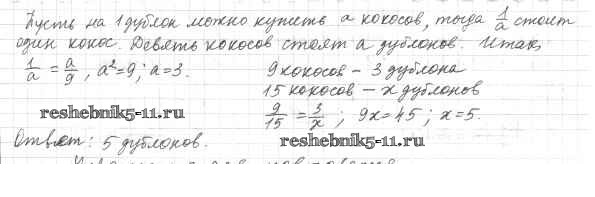 Пусть на 1 дублон можно купить a кокосов, тогда 1/a стоит
один кокос. Девять кокосов стоят a дублонов. Итак,
1/a = a/9, a²=9; a=3. 9 кокосов – 3 дублона
15 кокосов – x дублонов
9/15 = 3/x; 9x=45; x=5.
reshebnik5-11.ru
Ответ: 5 дублонов.
reshebnik5-11.ru